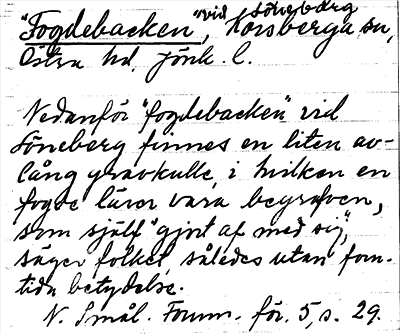 "Fogdebacken", vid Löneberg, Korsberga sn,
Östra hd, Jönk. l.
Nedanför "fogdebacken" vid
Löneberg finnes en liten av-
lång gravkulle, i hvilken en
fogde lärer vara begrafven,
som själf "gjort af med sig",
säger folket, således utan forn-
tida betydelse.
N. Smål. Fornm. för. 5, s. 29.